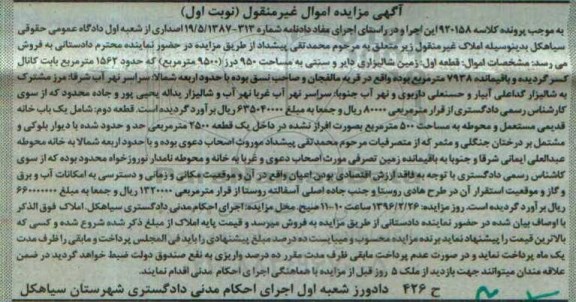 آگهی مزایده اموال غیرمنقول (نوبت اول)
به موجب پرونده کلاسه ۹۲۰۱۵۸ این اجرا و در راستای اجرای مفاد دادنامه شماره ۳۱۳-۱۹/۵/۱۳۸۷ اصداری از شعبه اول دادگاه عمومی حقوقی
سیاهکل بدینوسیله املاک غیرمنقول زیر متعلق به مرحوم محمدتقی پیشداد از طریق مزایده در حضور نماینده محترم دادستانی به فروش
می رسد: مشخصات اموال: قطعه اول: زمین شالیزاری دایر و سنتی به مساحت ۹۵۰ درز (۹۵۰۰ مترمربع) که حدود ۱۵۶۲ مترمربع بابت کانال
کسر گردیده و باقیمانده ۷۹۳۸ مترمربع بوده واقع در قریه مالفجان و صاحب نسق بوده با حدود اربعه شمالا: سراسر نهر آب شرقا: مرز مشترک
به شالیزار گداعلی آبیار و حسنعلی داریوی و نهر آب جنوبا: سراسر نهر آب غربا نهر آب و شالیزار یداله یحیی پور و جاده محدود که از سوی
کارشناس رسمی دادگستری از قرار مترمربعی ۸۰۰۰۰ ریال و جمعا به مبلغ ۶۳۵۰۴۰۰۰۰ ریال برآورد گردیده است. قطعه دوم: شامل یک باب خانه
قدیمی مستعمل و محوطه به مساحت ۵۰۰ مترمربع بصورت افراز نشده در داخل یک قطعه ۲۵۰۰ مترمربعی حد و حدود شده با دیوار بلوکی و
مشتمل بر درختان جنگلی و مثمر که از متصرفیات مرحوم محمدتقی پیشداد موروث اصحاب دعوی بوده و با حدود اربعه شمالا به خانه محوطه
عبدالعلی ایمانی شرقا و جنوبا به باقیمانده زمین تصرفی مورث اصحاب دعوی و غربا به خانه و محوطه نامدار نوروزخواه محدود بوده که از سوی
کارشناس رسمی دادگستری با توجه به فاقد ارزش اقتصادی بودن اعیان واقع در آن و موقعیت مکانی و زمانی و دسترسی به امکانات آب و برق
و گاز و موقعیت استقرار آن در طرح هادی روستا و جنب جاده اصلی آسفالته روستا از قرار مترمربعی ۱۳۲۰۰۰۰ ریال و جمعا به مبلغ ۶۶۰۰۰۰۰۰۰
ریال برآورد گردیده است. روز مزایده: ۱۳۹۶/۲/۲۶ ساعت ۱۰-۱۱ صبح. محل مزایده: اجرای احکام مدنی دادگستری سیاهکل. املاک فوق الذکر
با اوصاف بیان شده در حضور نماینده دادستانی از طریق مزایده به فروش میرسد و قیمت پایه املاک از مبلغ ذکر شده شروع شده و کسی که
بالاترین قیمت را پیشنهاد نماید برنده مزایده محسوب و میبایست ده درصد مبلغ پیشنهادی را باید فی المجلس پرداخت و مابقی را ظرف مدت
یک ماه پرداخت نماید و در صورت عدم پرداخت مابقی ظرف مدت مقرر ده درصد واریزی به نفع صندوق دولت ضبط خواهد گردید در ضمن
علاقه مندان میتوانند جهت بازدید از ملک ۵ روز قبل از مزایده با هماهنگی اجرای احکام مدنی اقدام نمایند.
ح ۴۲۶ دادورز شعبه اول اجرای احکام مدنی دادگستری شهرستان سیاهکل